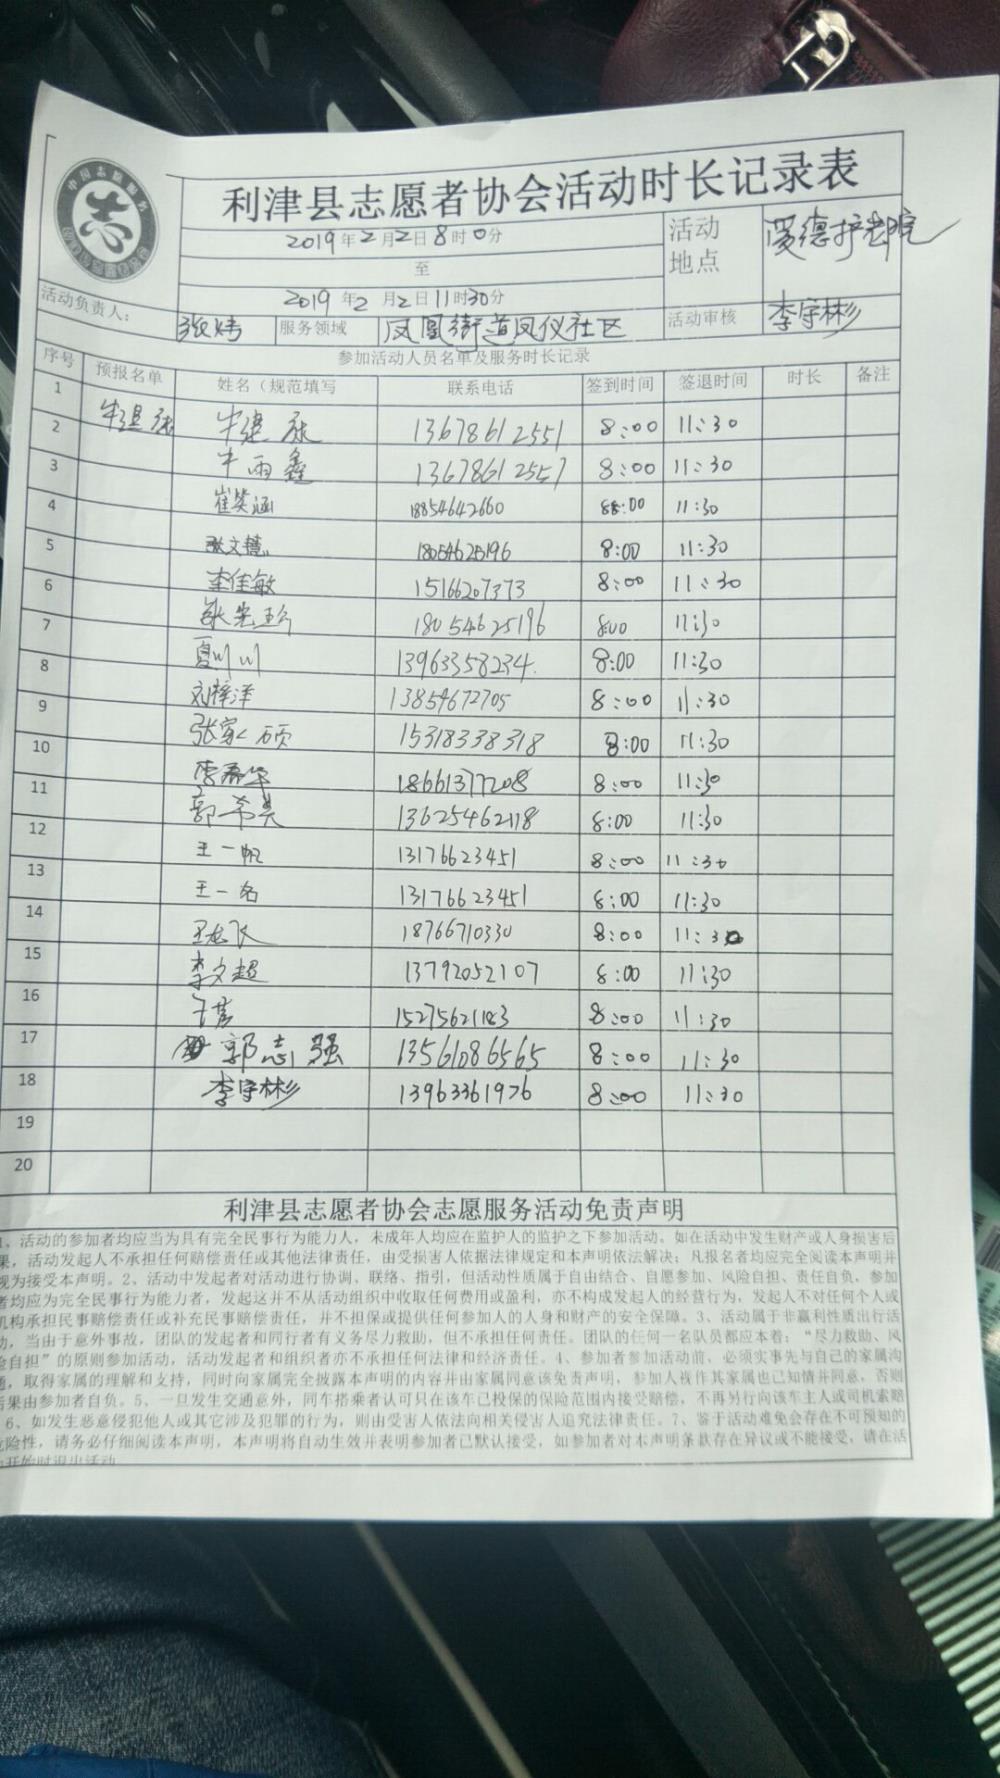 利津县志愿者协会活动时长记录表
2019年2月2日8时0分
至
2019年2月2日11时30分
活动地点
活动负责人：
服务领域 凤凰街道凤仪社区
活动审核 李宇彬
参加活动人员名单及服务时长记录
序号 预报名单 姓名（规范填写 联系电话 签到时间 签退时间 时长 备注
1
2 13678612551 8:00 11:30
3 牛雨鑫 13678612557 8:00 11:30
4 崔笑涵 18854642660 8:00 11:30
5 张文慧 18054625196 8:00 11:30
6 李佳敏 15166207373 8:00 11:30
7 18054625196 8:00 11:30
8 夏川川 13963358234 8:00 11:30
9 刘梓洋 13854672705 8:00 11:30
10 张家硕 15318338318 8:00 11:30
11 18661377208 8:00 11:30
12 郭希昊 13625462118 8:00 11:30
13 王一帆 13176623451 8:00 11:30
14 王一名 13176623451 8:00 11:30
15 王龙飞 18766710330 8:00 11:30
16 李文超 13792052107 8:00 11:30
17 8:00 11:30
18 郭志强 13561086565 8:00 11:30
李宇彬 13963361976 8:00 11:30
19
20
利津县志愿者协会志愿服务活动免责声明
1、活动的参加者均应当为具有完全民事行为能力人，未成年人均应在监护人的监护之下参加活动。如在活动中发生财产或人身损害后
果，活动发起人不承担任何赔偿责任或其他法律责任，由受损害人依据法律规定和本声明依法解决；凡报名者均应完全阅读本声明并
视为接受本声明。2、活动中发起者对活动进行协调、联络、指引，但活动性质属于自由结合、自愿参加、风险自担、责任自负，参加
者均应为完全民事行为能力者，发起这并不从活动组织中收取任何费用或盈利，亦不构成发起人的经营行为，发起人不对任何个人或
机构承担民事赔偿责任或补充民事赔偿责任，并不担保或提供任何参加人的人身和财产的安全保障。3、活动属于非赢利性质出行活
动，当由于意外事故，团队的发起者和同行者有义务尽力救助，但不承担任何责任。团队的任何一名队员都应本着：“尽力救助、风
险自担”的原则参加活动，活动发起者和组织者亦不承担任何法律和经济责任。4、参加者参加活动前，必须实事先与自己的家属沟
通，取得家属的理解和支持，同时向家属完全披露本声明的内容并由家属同意该免责声明，参加人视作其家属也已知情并同意，否则
后果由参加者自负。5、一旦发生交通意外，同车搭乘者认可只在该车已投保的保险范围内接受赔偿，不再另行向该车主人或司机索赔
6、如发生恶意侵犯他人或其它涉及犯罪的行为，则由受害人依法向相关侵害人追究法律责任。7、鉴于活动难免会存在不可预知的
危险性，请务必仔细阅读本声明，本声明将自动生效并表明参加者已默认接受，如参加者对本声明条款存在异议或不能接受，请在活
动开始时退出活动